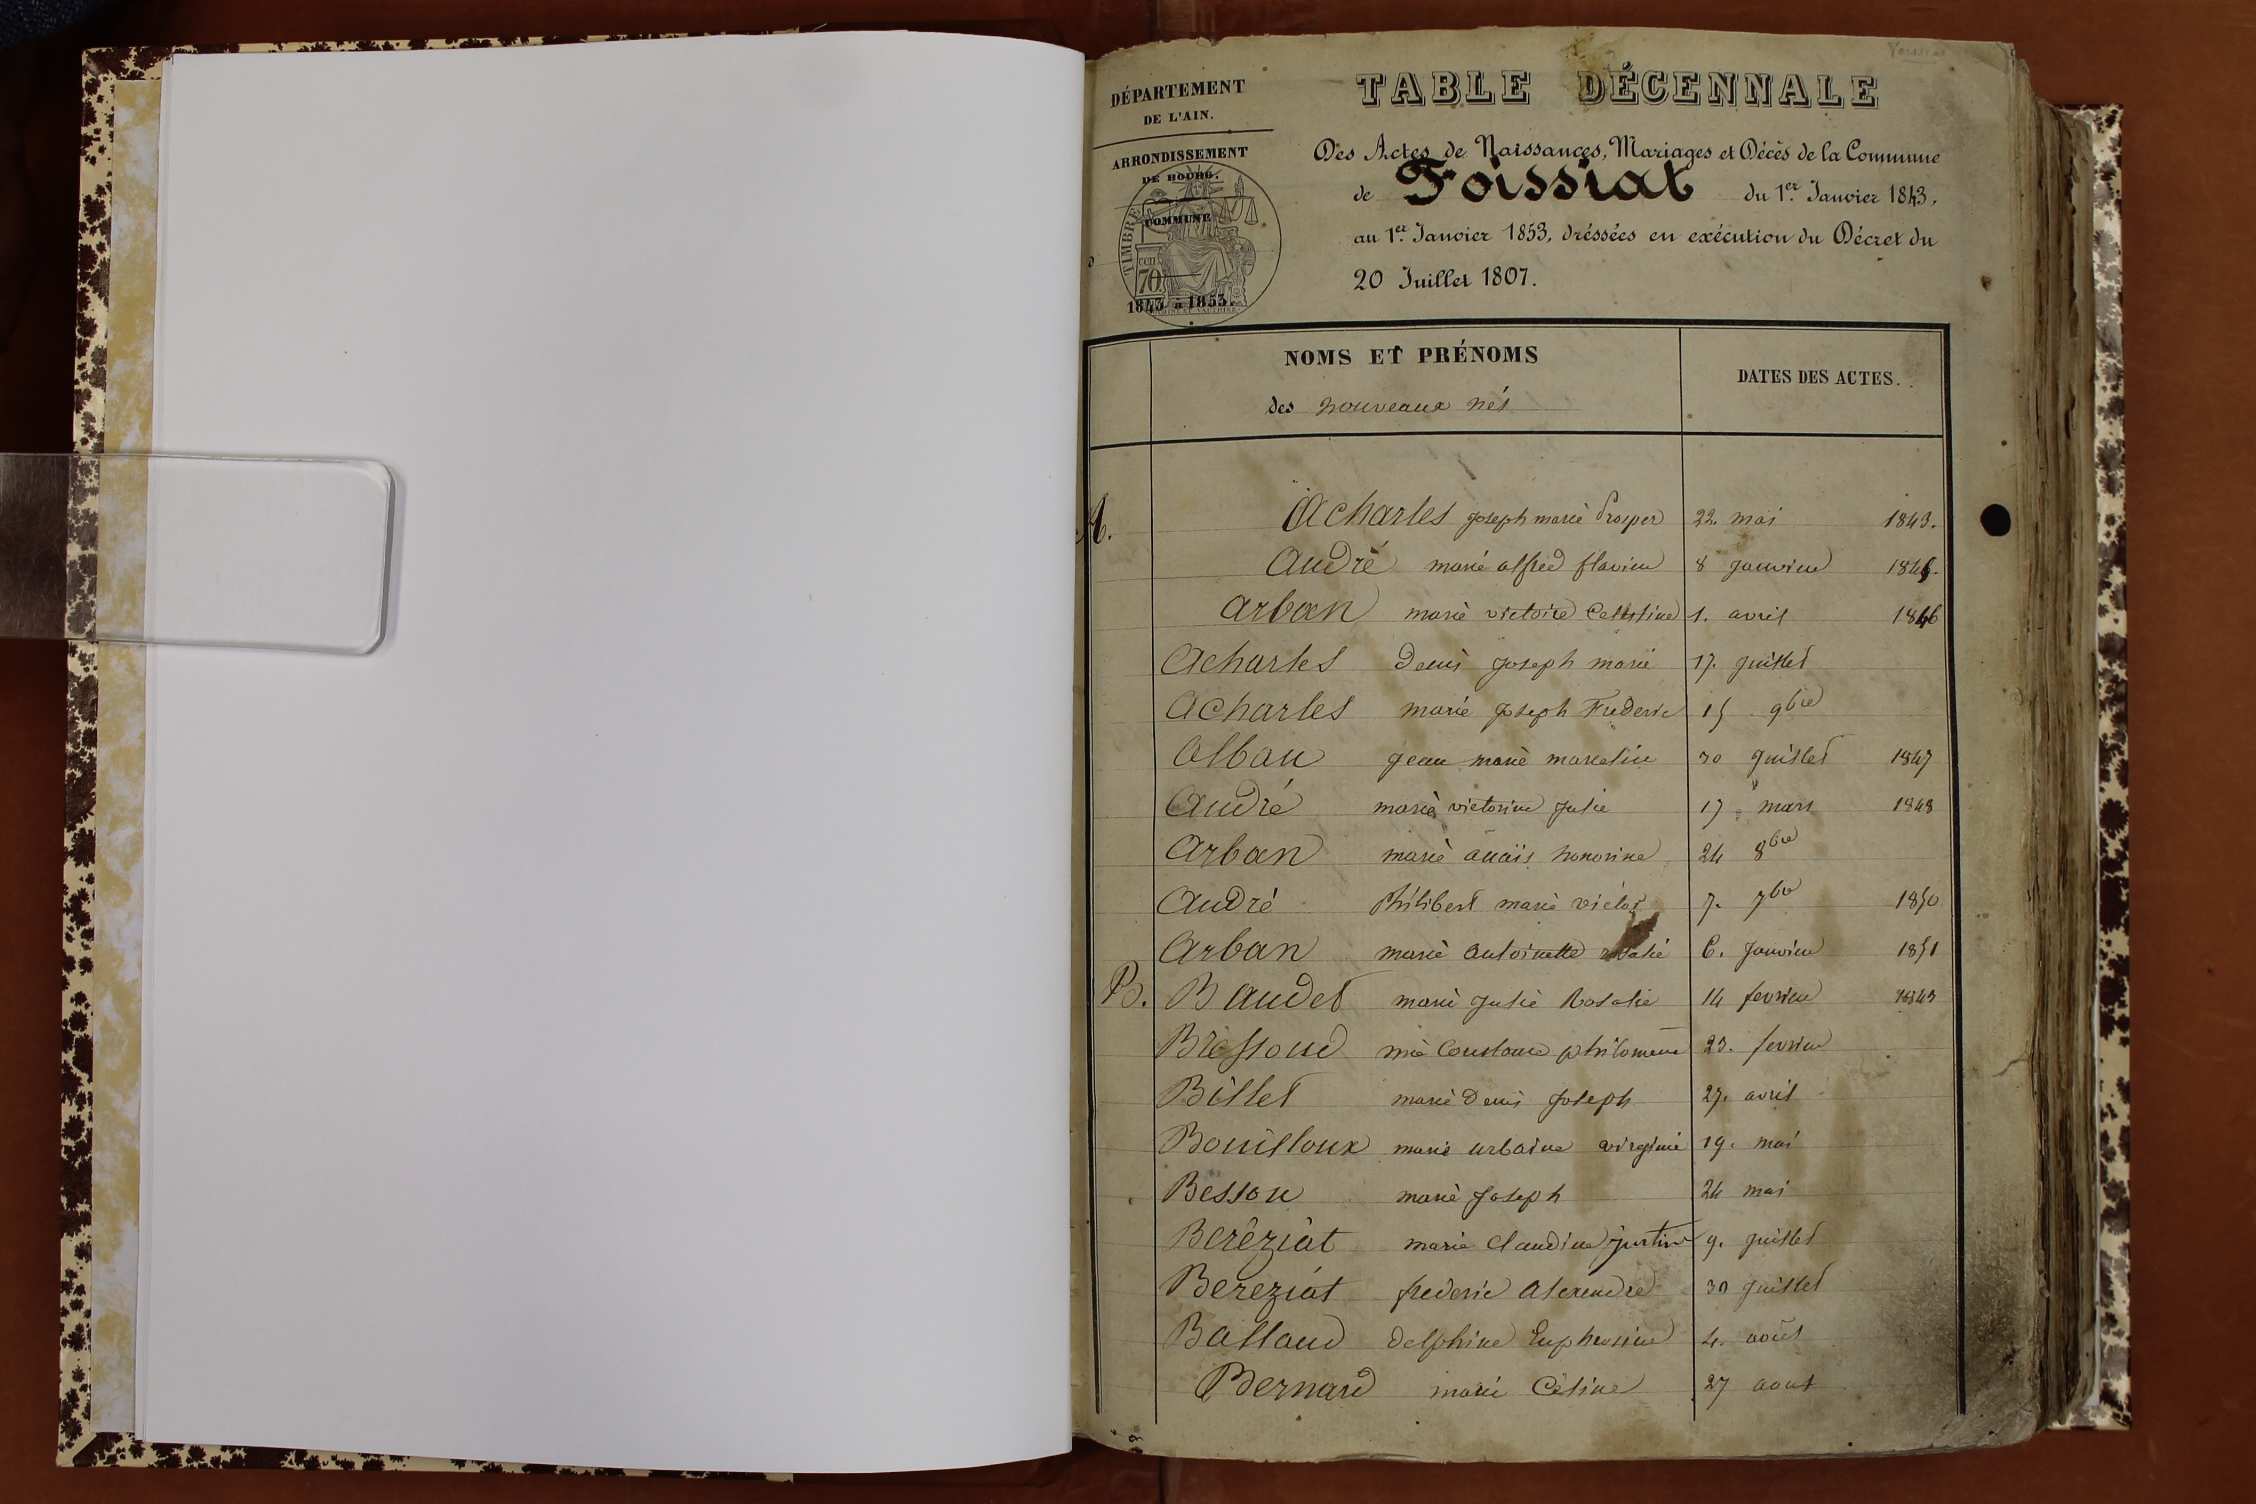 DÉPARTEMENT
DE L'AIN.
ARRONDISSEMENT
DE BOURG.
COMMUNE
TIMBRE
70
1843 à 1853.
TABLE DÉCENNALE
Des Actes de Naissances, Mariages et Décès de la Commune
de Foissiat du 1er. Janvier 1843,
au 1er. Janvier 1853, dréssées en exécution du Décret du
20 Juillet 1807.
NOMS ET PRÉNOMS
des nouveaux nés
DATES DES ACTES.
A. Acharles joseph marie Prosper 22. mai 1843.
André marie alfred flavien 8 janvier
arban marie victoire Celestine 1. avril 1846
Acharles Denis joseph marie 17. juillet
Acharles marie joseph Frederic 15 9bre
Alban jean marie marcelin 30 juillet 1847
André marie victorine julie 17 mars 1848
Arban marie anaïs honorine 24 8bre
André Philibert marie victor 7. 7bre 1850
Arban marie antoinette rosalie 6. janvier 1851
B. Baudet marie julie Rosalie 14 fevrier 1843
Bressoud mie Constance philomene 23. fevrier
Billet marie Denis joseph 27. avril
Bouilloux marie urbaine virginie 19. mai
Besson marie joseph 24 mai
Berêziat marie claudine justine 9. juillet
Bereziat frederic alexendre 30 juillet
Balland delphine Euphrosine 4. août
Bernard marie Céline 27 aout